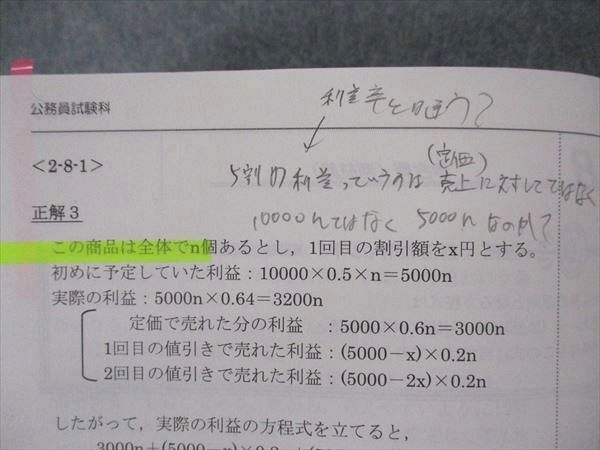 公務員試験科
利益率と違う?
<2-8-1>
(定価)
5割の利益っていうのは 売上に対してではなく
正解3
10000nではなく 5000nなの?
この商品は全体でn個あるとし,1回目の割引額をx円とする。
初めに予定していた利益:10000×0.5×n=5000n
実際の利益:5000n×0.64=3200n
定価で売れた分の利益 :5000×0.6n=3000n
1回目の値引きで売れた利益:(5000-x)×0.2n
2回目の値引きで売れた利益:(5000-2x)×0.2n
したがって,実際の利益の方程式を立てると,